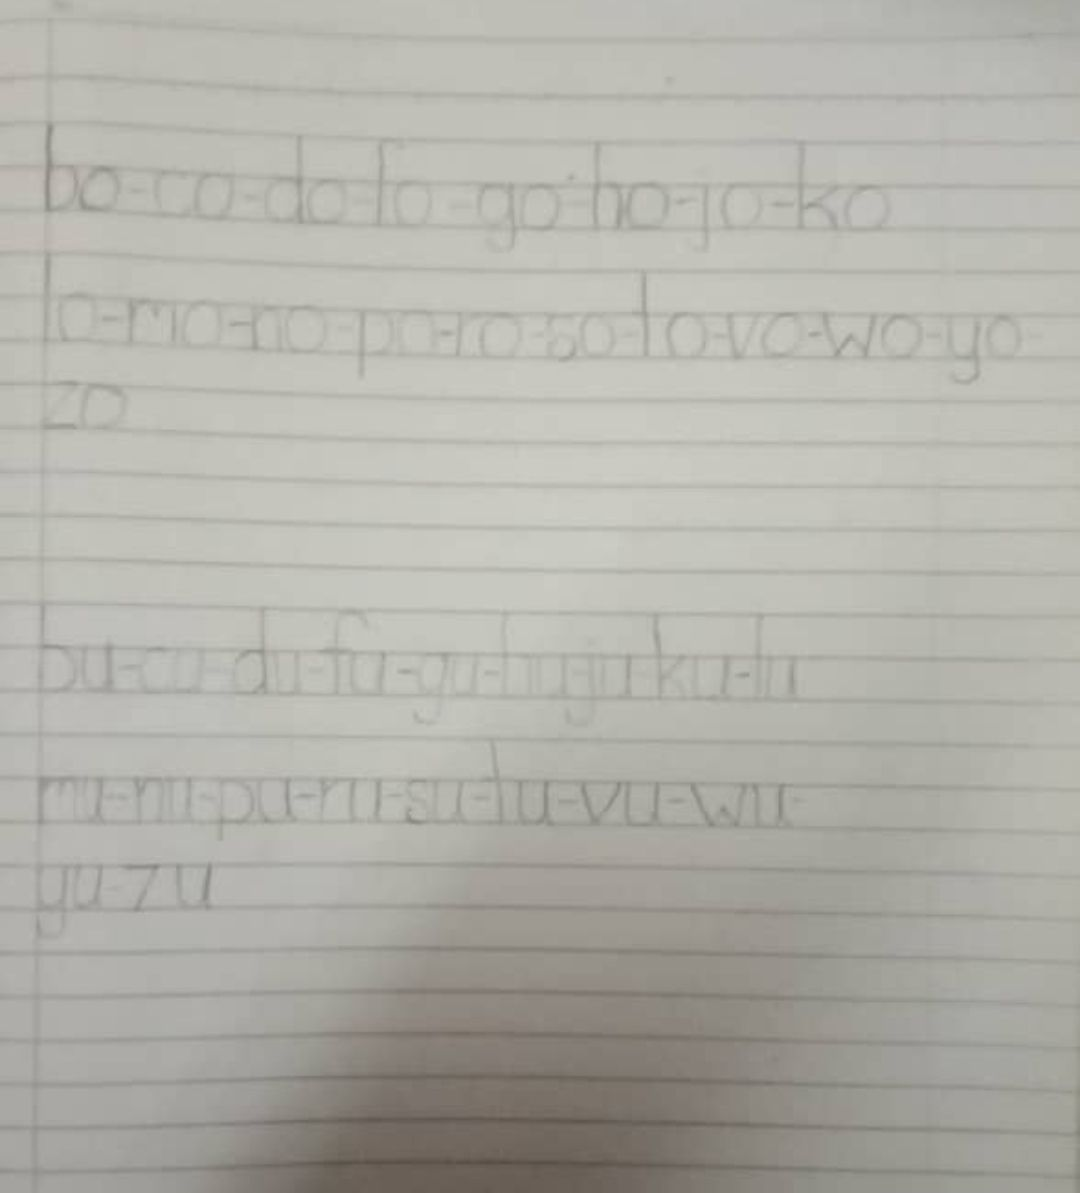 bo-co-do-fo-go-ho-jo-ko
lo-mo-no-po-ro-so-to-vo-wo-yo-
zo
bu-cu-du-fu-gu-hu-ju-ku-lu
mu-nu-pu-ru-su-tu-vu-wu-
yu-zu